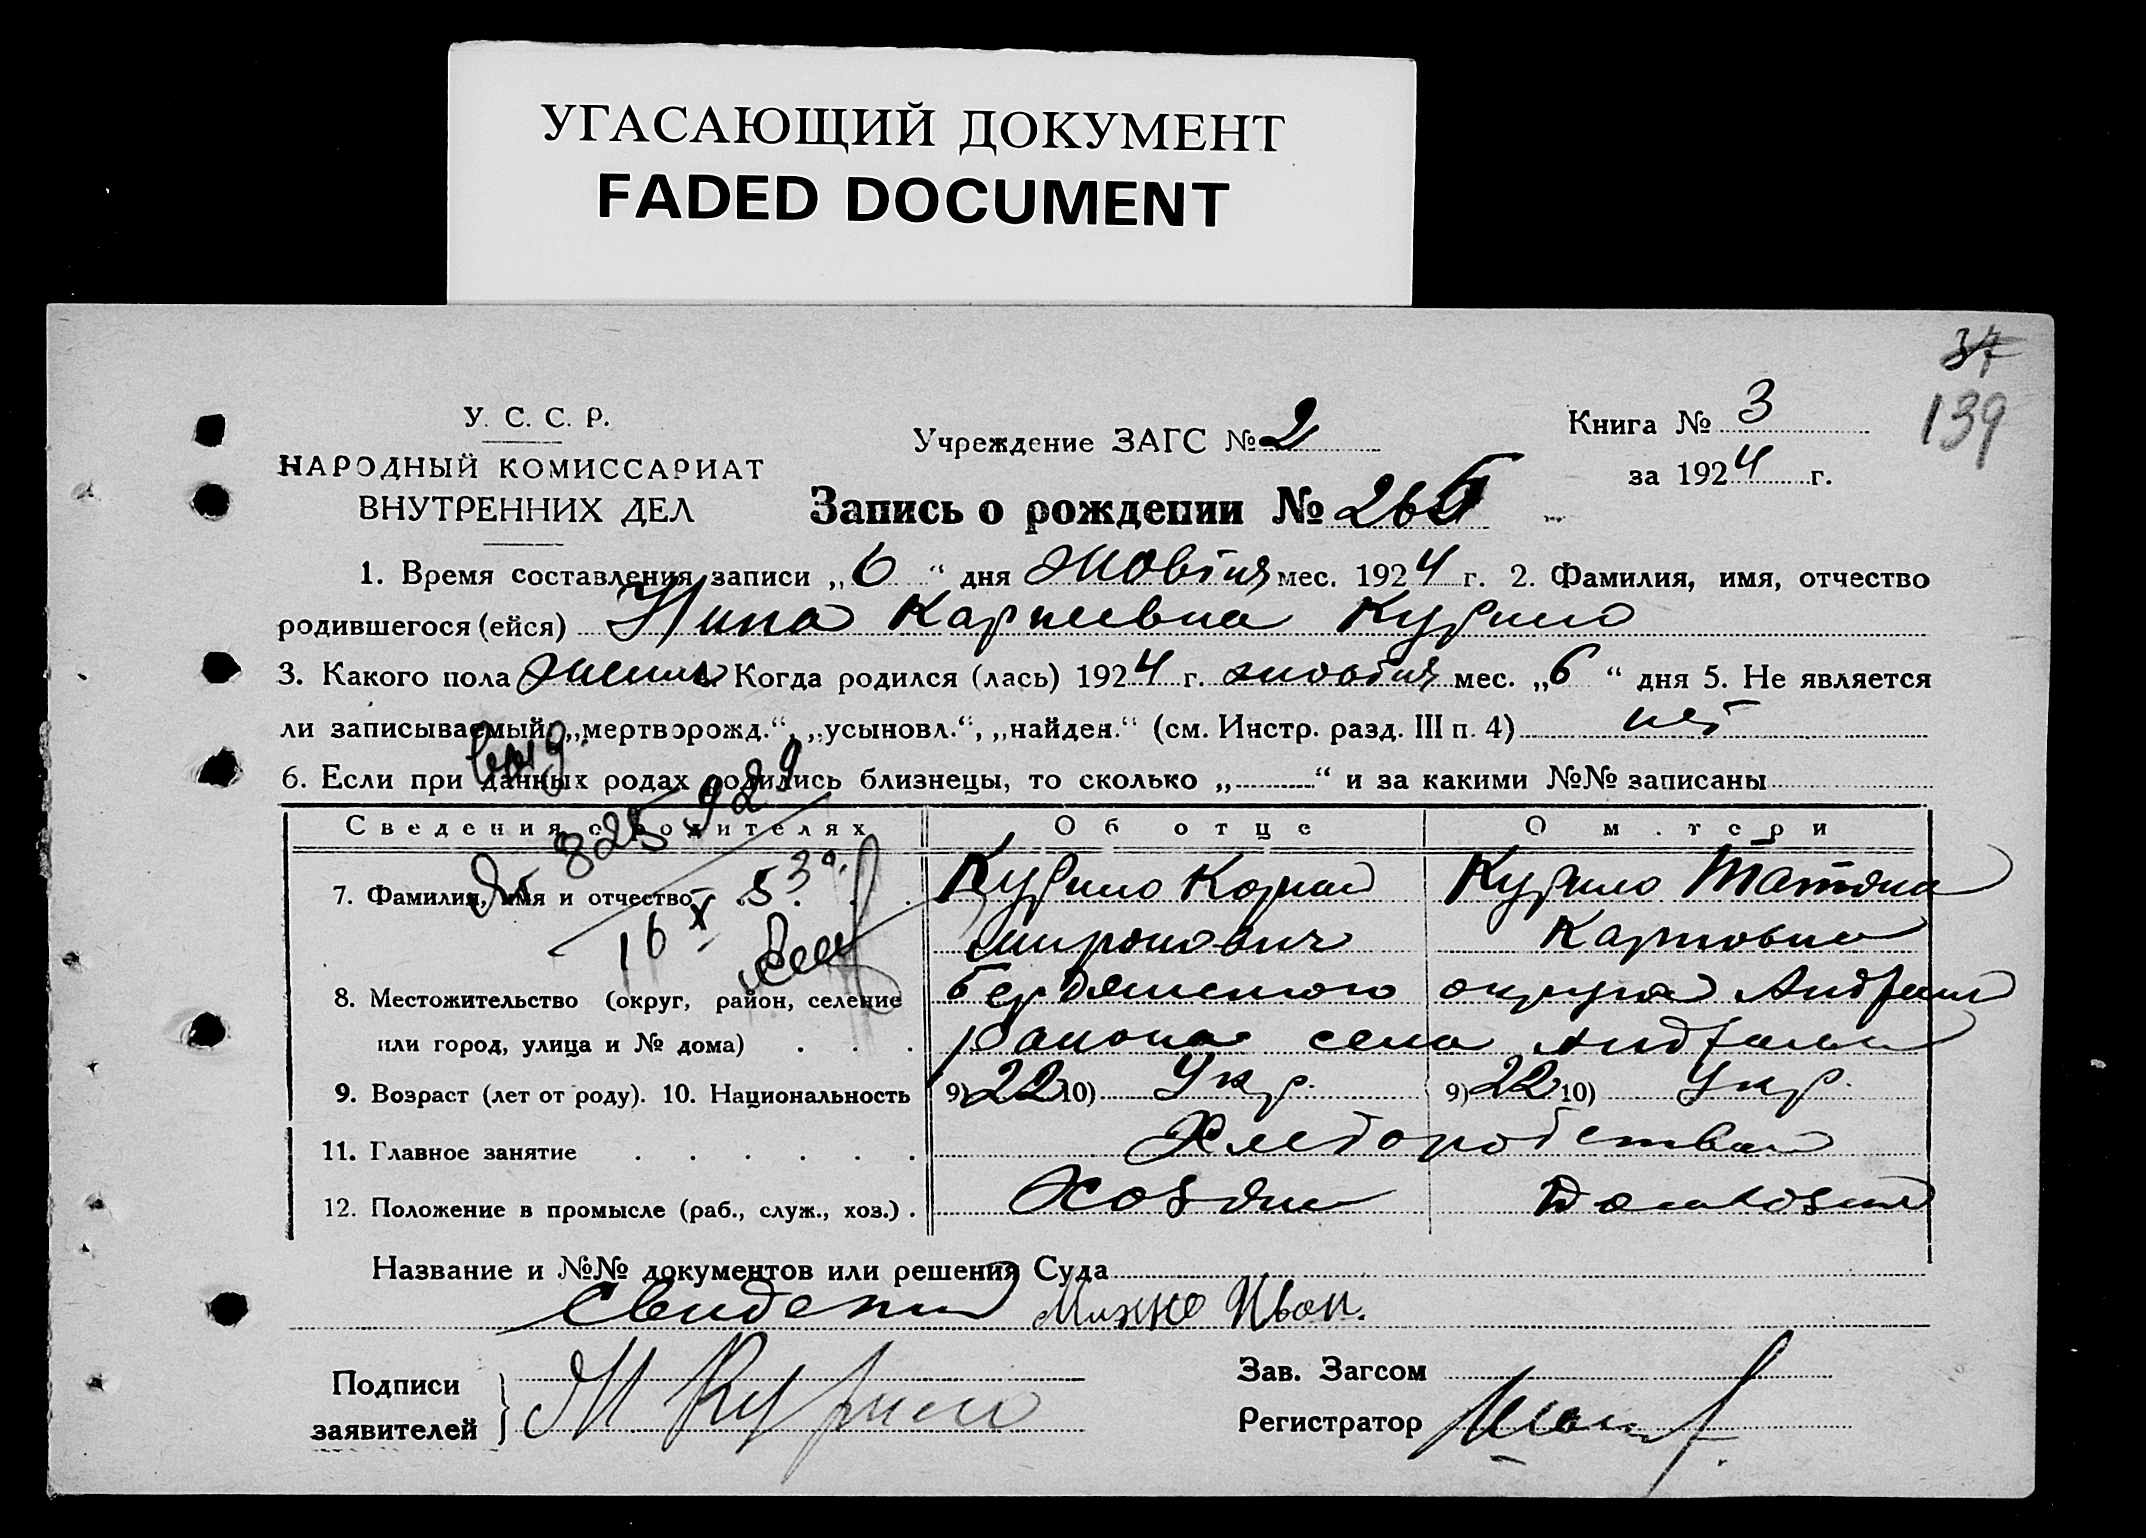 УГАСАЮЩИЙ ДОКУМЕНТ
FADED DOCUMENT
37
139
У. С. С. Р.
НАРОДНЫЙ КОМИССАРИАТ
ВНУТРЕННИХ ДЕЛ
Учреждение ЗАГС № 2
Книга № 3
за 1924 г.
Запись о рождении №
1. Время составления записи „6“ дня жовтня мес. 1924 г. 2. Фамилия, имя, отчество
родившегося (ейся) Нина Карпевна Курило
3. Какого пола женск. Когда родился (лась) 1924 г. жовтня мес. „6“ дня 5. Не является
ли записываемый „мертворожд.“, „усыновл.“, „найден.“ (см. Инстр. разд. III п. 4) нет
6. Если при данных родах родились близнецы, то сколько „ “ и за какими №№ записаны
Сведения о родителях Об отце О матери
7. Фамилия, имя и отчество Курило Карпо Курило Татяна
Миронович Карповна
8. Местожительство (округ, район, селение Бердянского округа Андреев
или город, улица и № дома) района села Андреевки
9. Возраст (лет от роду). 10. Национальность 9) 22 10) Укр. 9) 22 10) Укр.
11. Главное занятие Хлеборобство
12. Положение в промысле (раб., служ., хоз.) Хозяин Домхозяй
Название и №№ документов или решения Суда
Свидетель Михно Иван.
Подписи
заявителей
М Курило
Зав. Загсом
Регистратор